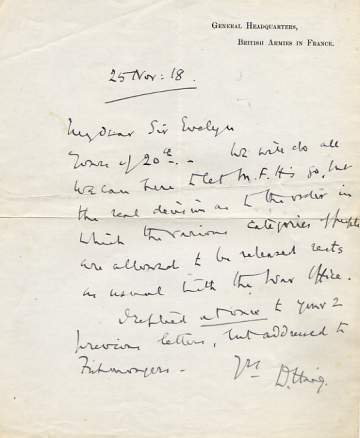 GENERAL HEADQUARTERS,
BRITISH ARMIES IN FRANCE.
25 Nov: 18.
My dear Sir Evelyn
Yours of 20th. — We will do all
we can here to let M.F.H's go, but
the real decision as to the order in
which the various categories of people
are allowed to be released rests
as usual with the War Office.
I replied at once to your 2
previous letters, but addressed to
Fishmongers —
Yrs D. Haig.